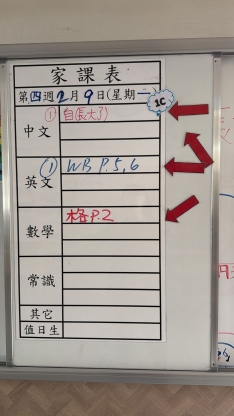 家課表
第四週2月9日(星期一)
1C
中文 ① 自(長大了)
英文 ① WB P.5,6
數學 格P.2
常識
其它
值日生